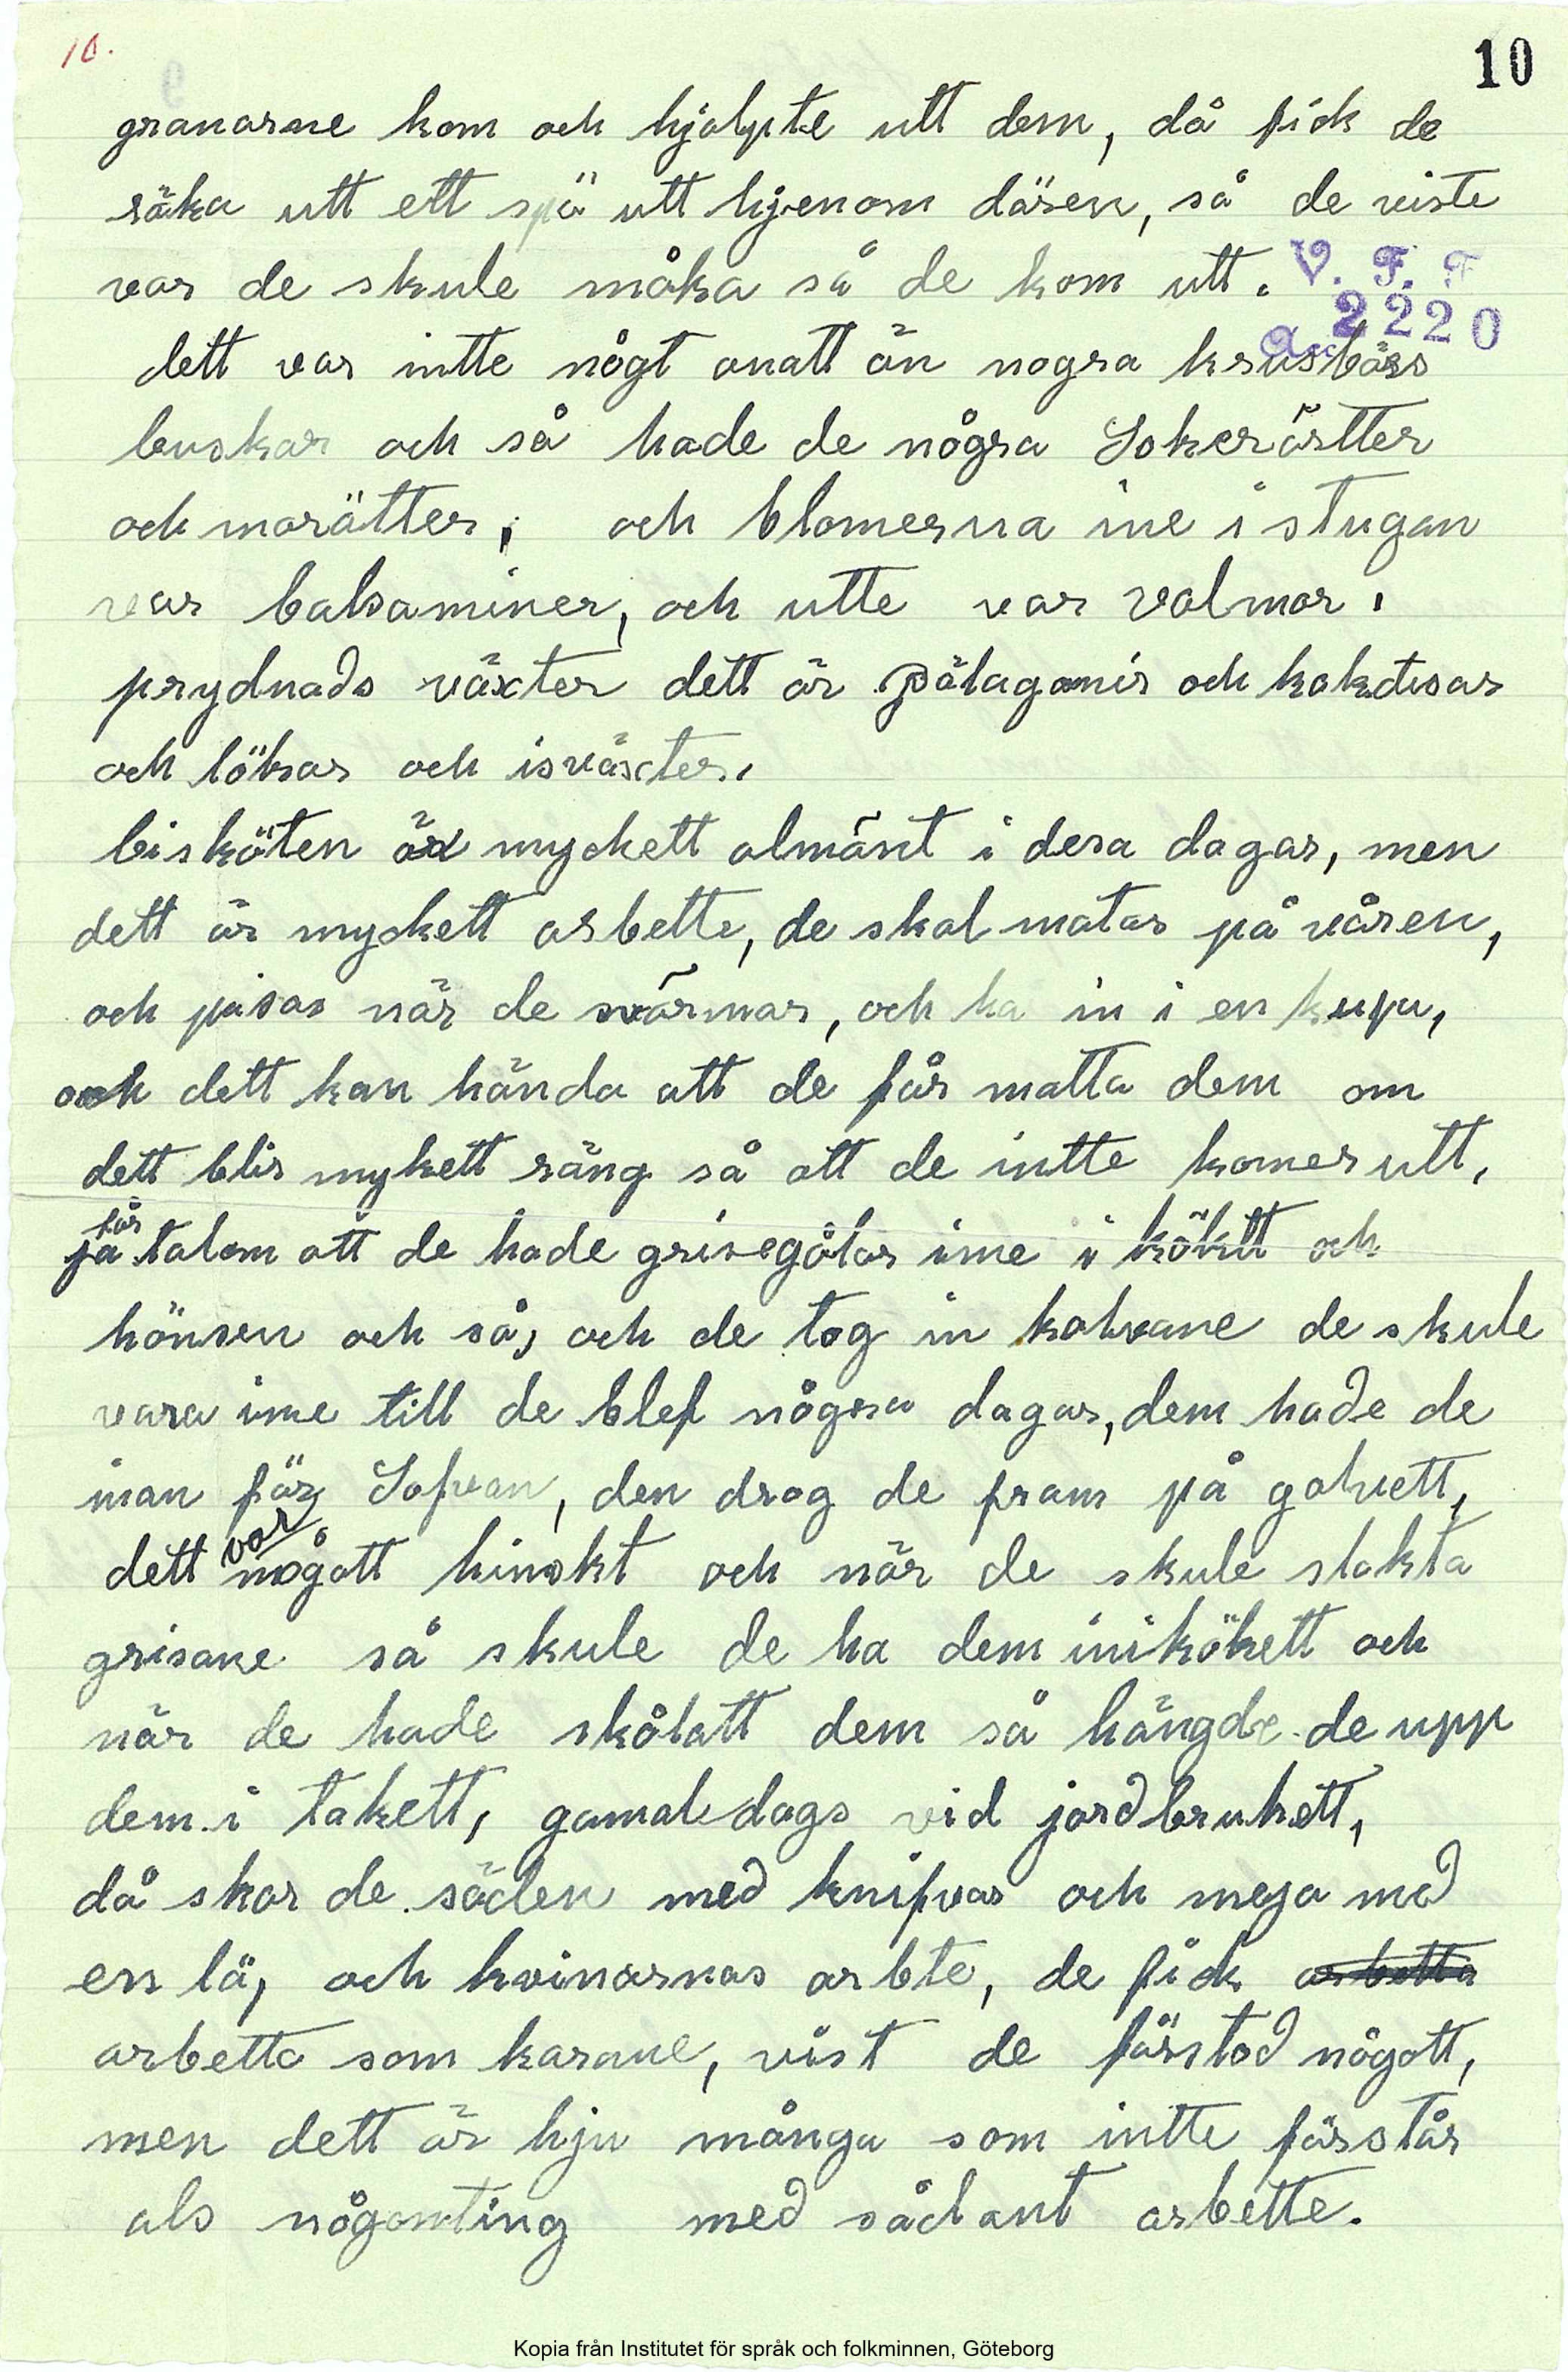 10.
10
granarne kom och hjalpte utt dem, då fick de
räka utt ett spö utt hjenom dären, så de viste
var de skule måka så de kom utt.
V. F. F
2220
Acc
dett var intte någt anatt än nogra krusbärs
buskar och så hade de några Sokerärtter
och morätter, och blomerna ine i stugan
var balsaminer, och utte var valmor.
prydnads växter dett är Pälaganir och kaktusar
och lökar och isväxter.
bisköten är myckett almänt i dera dagar, men
dett är myckett arbette, de skal matas på våren,
och pasas när de svärmar, och ha in i en kupa,
och dett kan hända att de får matta dem om
dett blir mykett räng så att de intte komer utt,
för
ja talom att de hade grisegålar ine i kökett och
hönsen och så, och de tog in kalvane de skule
vara ine till de blef några dagar, dem hade de
inan för Sofvan, den drog de fram på golvett,
var
dett någott hinskt och när de skule slakta
grisane så skule de ha dem iniköket och
när de hade skålatt dem så hängde de upp
dem i takett, gamaledags vid jordbrukett,
då skar de säden med knifvar och meja med
en lä, och kvinarnas arbte, de fick arbetta
arbetta som karane, vist de förstod någott,
men dett är hju många som intte förstår
als någomting med sådant arbette.
Kopia från Institutet för språk och folkminnen, Göteborg